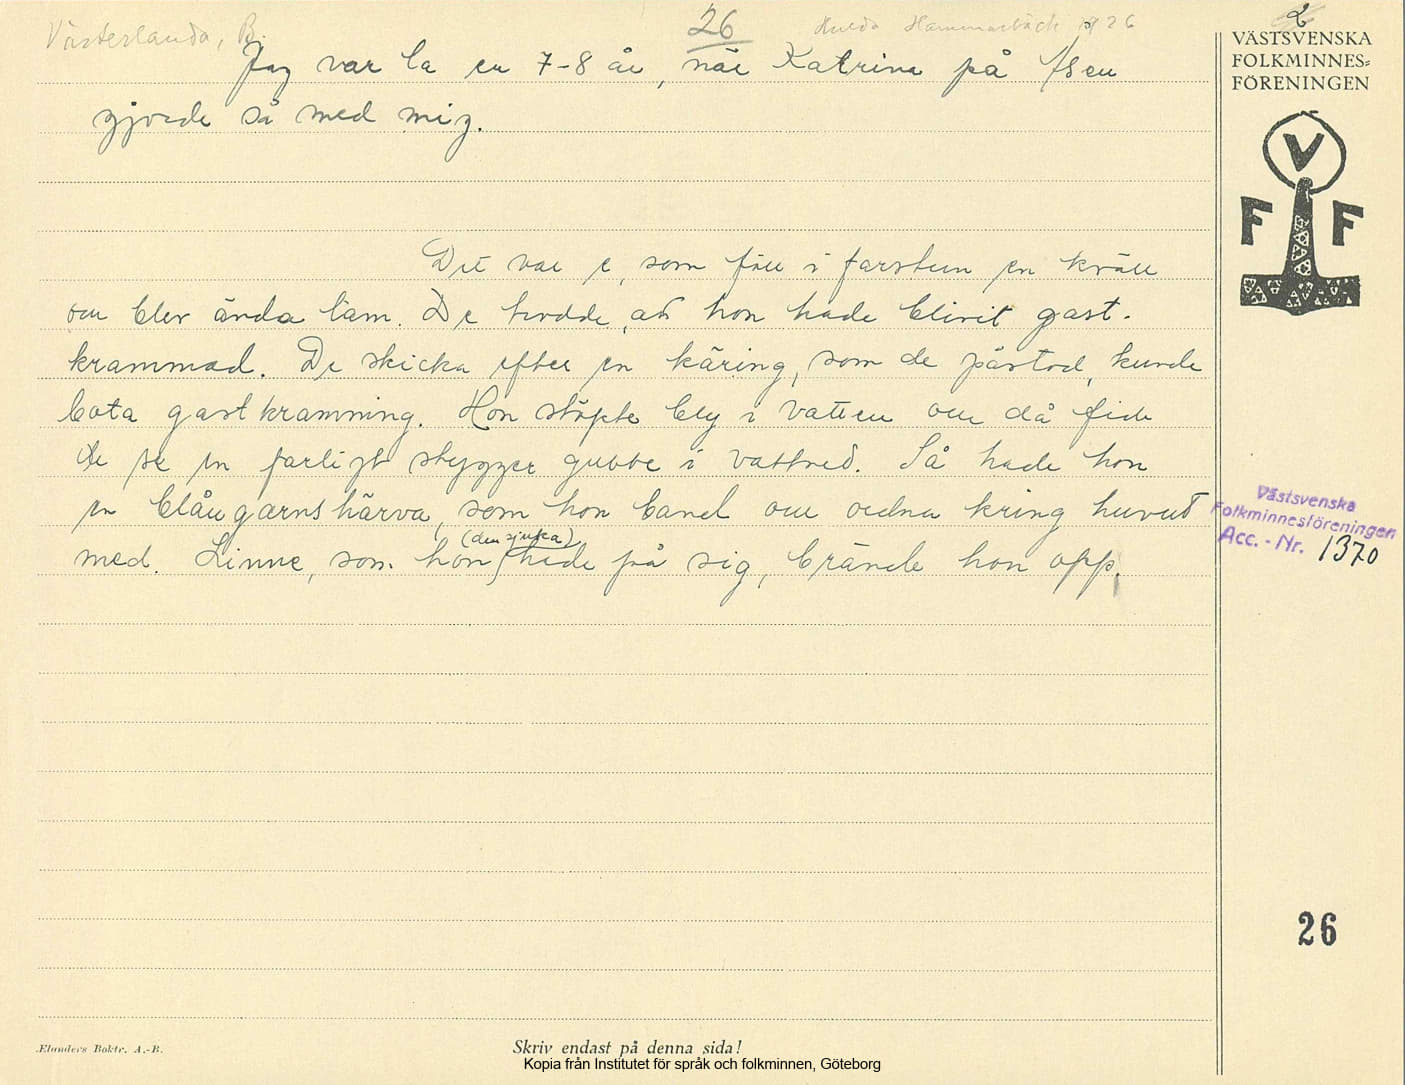 Västerlanda, B.
26
Hulda Hammarbäck 1926
2
VÄSTSVENSKA
FOLKMINNES=
FÖRENINGEN
V
F F
Jag var la en 7-8 år, när Katrina på Åsen
gjorde så med mig.
Det var e, som föll i farstun en kväll
ou blev ända lam. De trodde, att hon hade blivit gast-
krammad. De skicka efter en käring, som de påstod, kunde
bota gastkramning. Hon stöpte bly i vatten ou då fick
de se en farligt stygger gubbe i vattned. Så hade hon
en blångarnshärva, som hon band ou ordna kring huvud
med. Linne, som hon (den sjuka) hade på sig, brände hon opp.
Västsvenska
Folkminnesföreningen
Acc. - Nr. 1370
26
Elanders Boktr. A.-B.
Skriv endast på denna sida!
Kopia från Institutet för språk och folkminnen, Göteborg